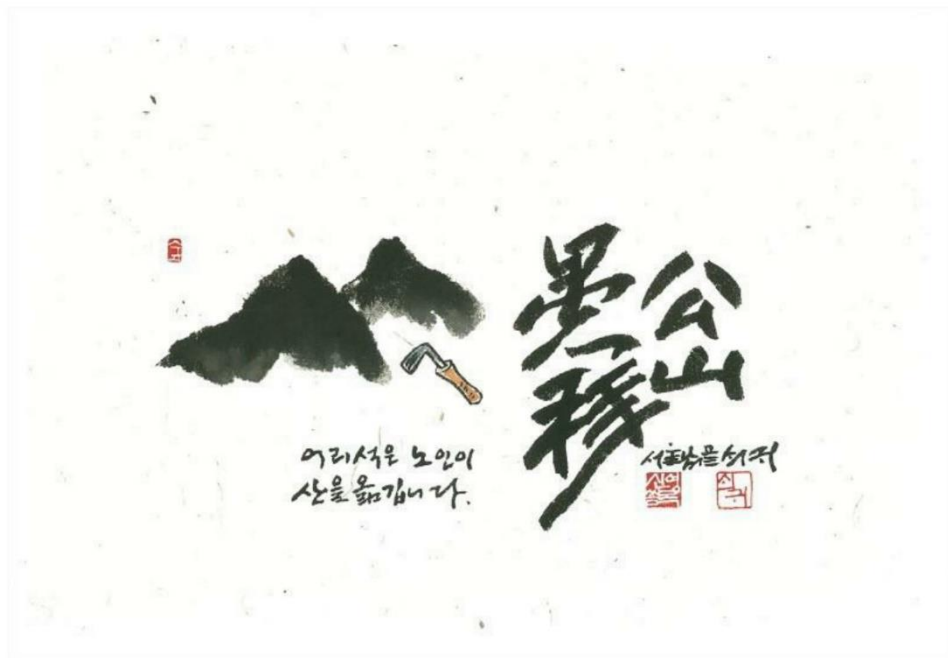 愚公
移山
어리석은 노인이
산을 옮깁니다.